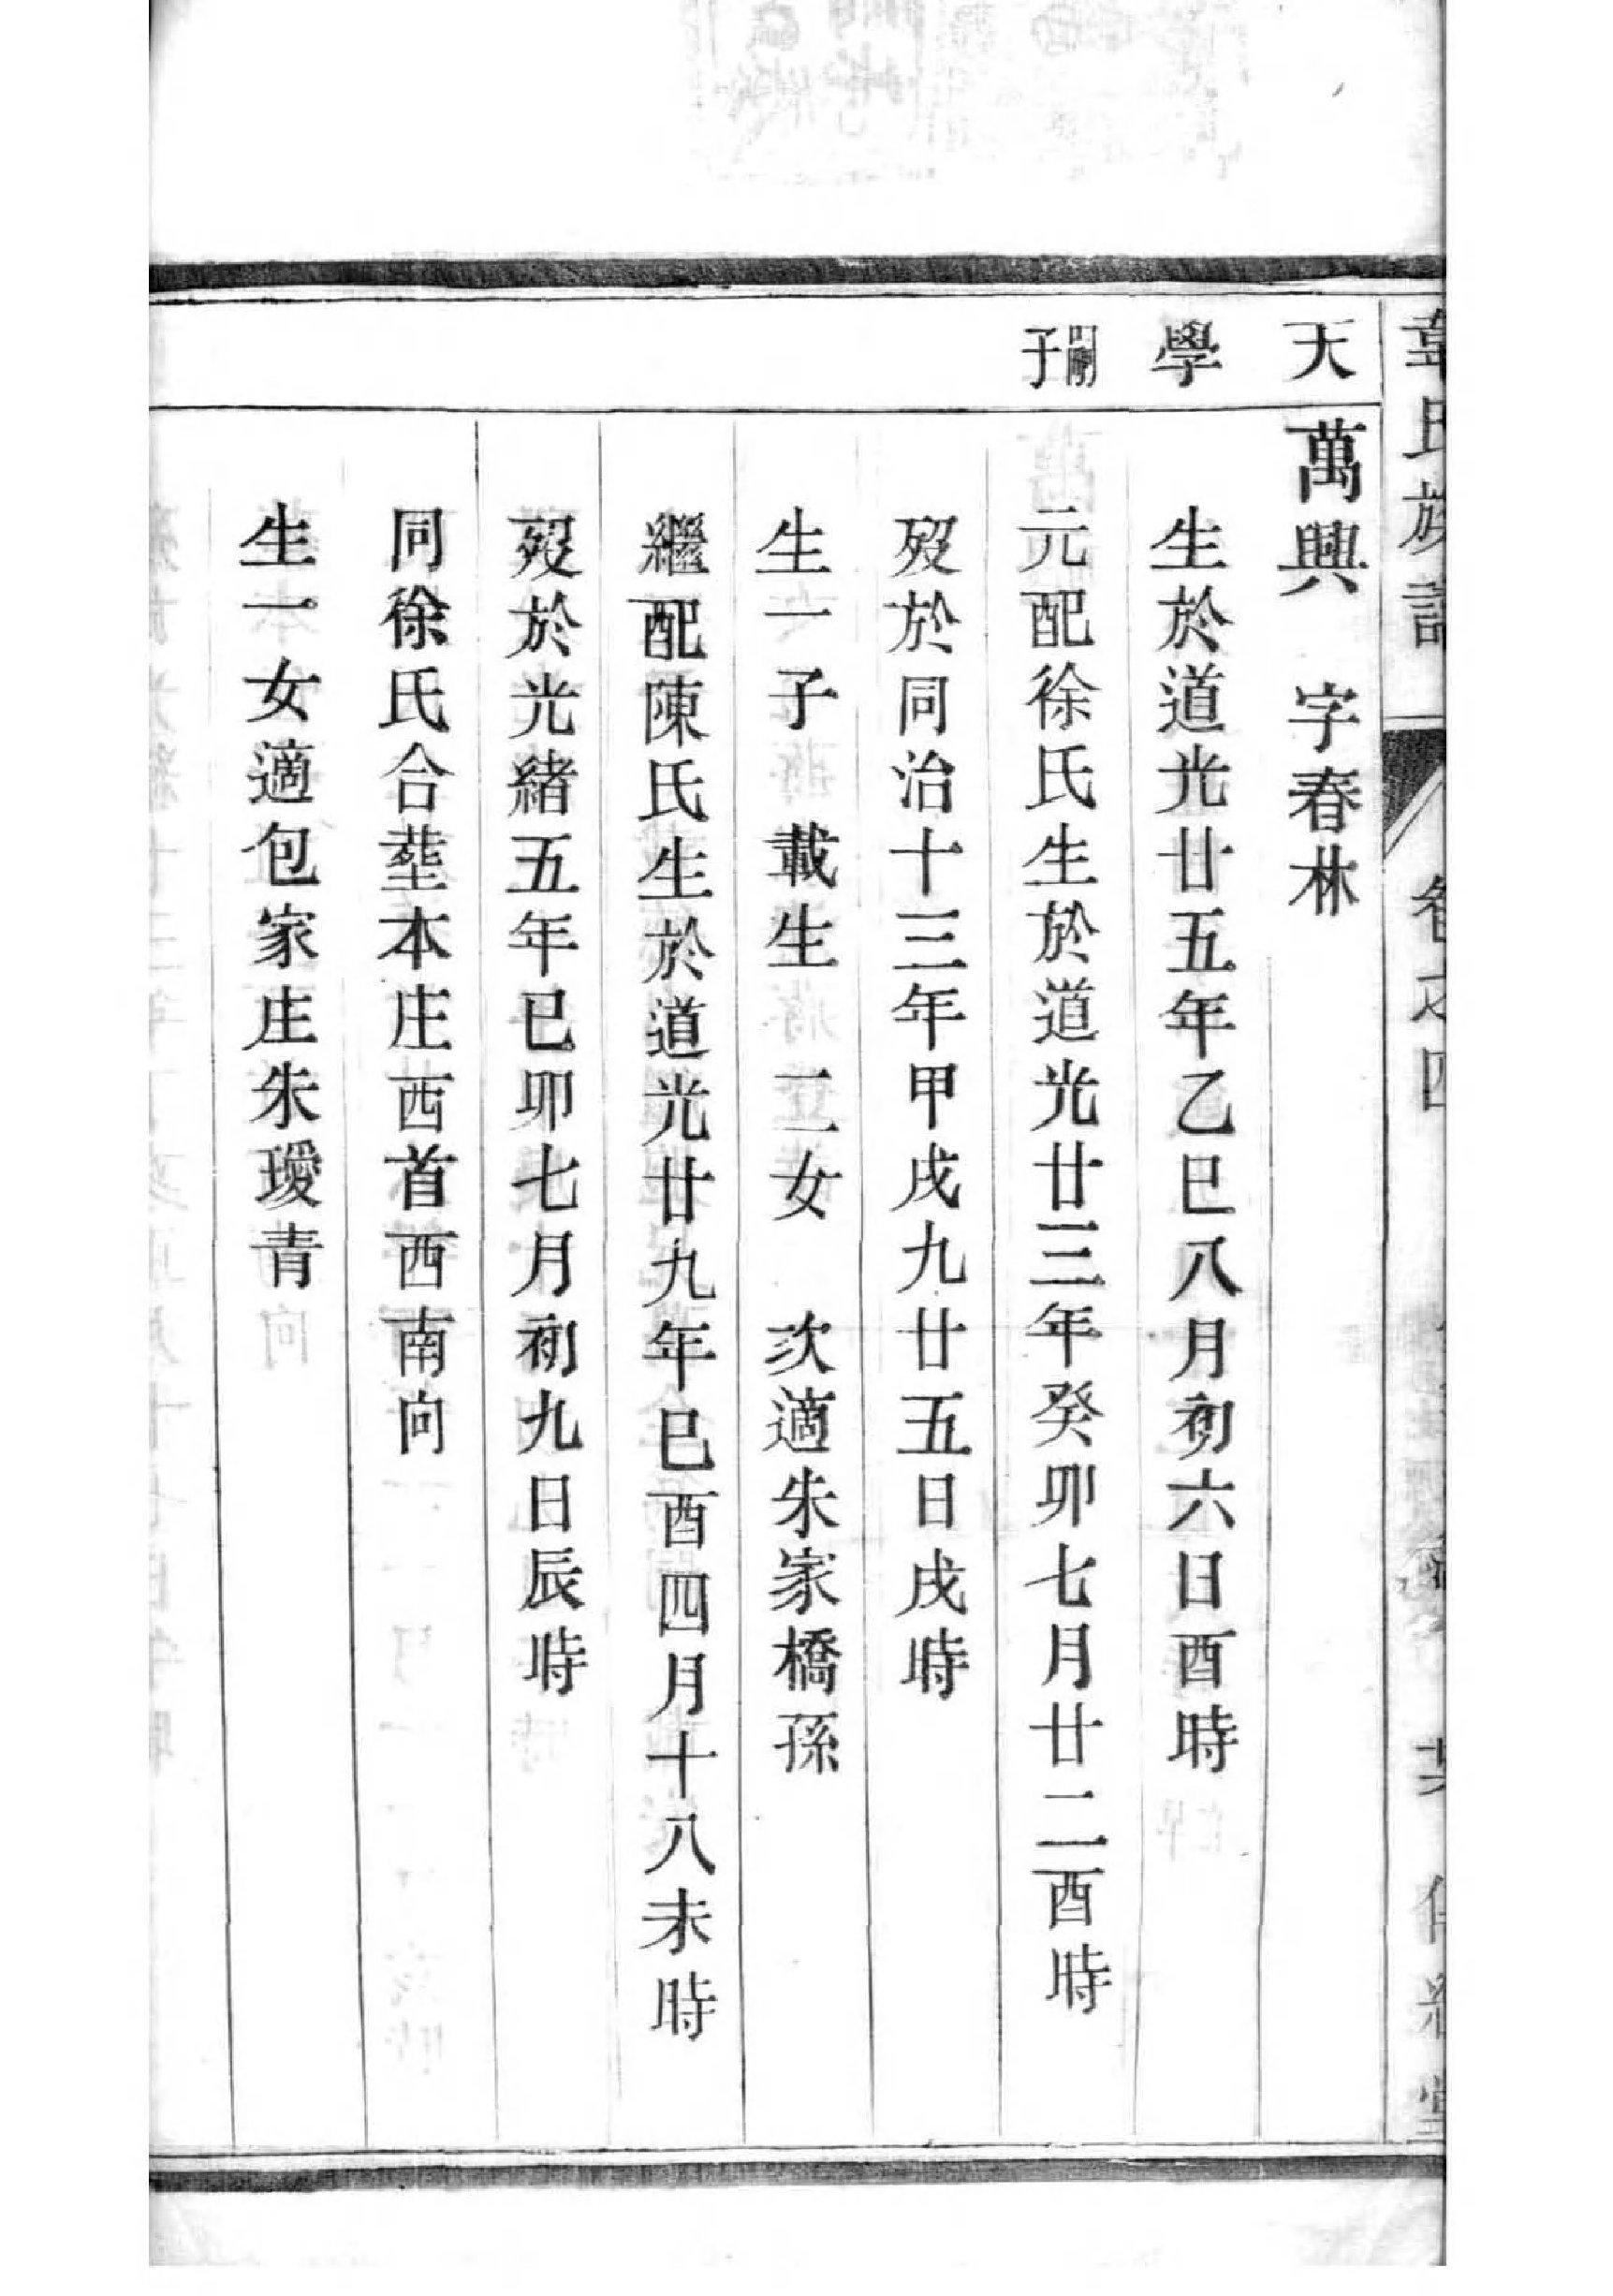 韋氏族譜
卷之四
天學嗣子
萬興 字春林
生於道光廿五年乙巳八月初六日酉時
元配徐氏生於道光廿三年癸卯七月廿二酉時
歿於同治十三年甲戌九廿五日戌時
生一子 載生 二女 次適朱家橋孫
繼配陳氏生於道光廿九年巳酉四月十八未時
歿於光緒五年巳卯七月初九日辰時
同徐氏合塟本庄西首西南向
生一女適包家庄朱璦青